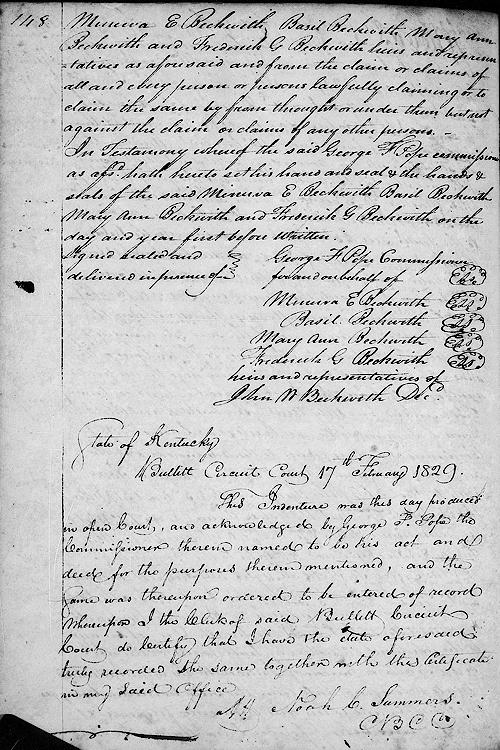 148
Minerva E Beckwith, Basil Beckwith, Mary Ann
Beckwith and Frederick G Beckwith heirs and represen
-tatives as aforesaid and from the claim or claims of
all and every person or persons lawfully claiming or to
claim the same by from throught or under them but not
against the claim or claims of any other persons. -
In Testamony whereof the said George F Pope commissioner
as afsd. hath hereto set his hand and seal & the hands &
seals of the said Minerva E Beckwith Basil Beckwith
Mary Ann Beckwith and Frederick G Beckwith on the
day and year first before written.
Signd sealed and George F Pope Commissioner
delivered in presence of for and on behalf of
Minerva E Beckwith
Basil Beckwith
Mary Ann Beckwith
Frederick G Beckwith
heirs and representatives of
John W Beckwith Dec'd.
State of Kentucky
Bullett Circuit Court 17th February 1829.
This Indenture was this day produced
in open Court, and acknowledged by George F. Pope the
Commissioner therein named to be his act and
deed for the purposes therein mentioned, and the
same was thereupon ordered to be entered of record
Whereupon I the Clerk of said Bullett Circuit
Court do Certify that I have the date aforesaid
truly recorded the same together with this Certificate
in my said Office
Att Noah C. Summers.
CBCC